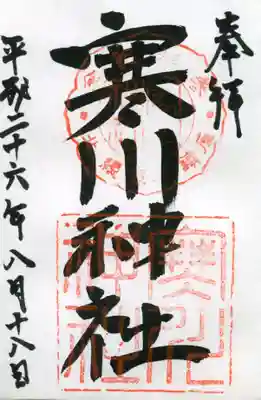 奉拝
寒川神社
平成二十六年八月十八日